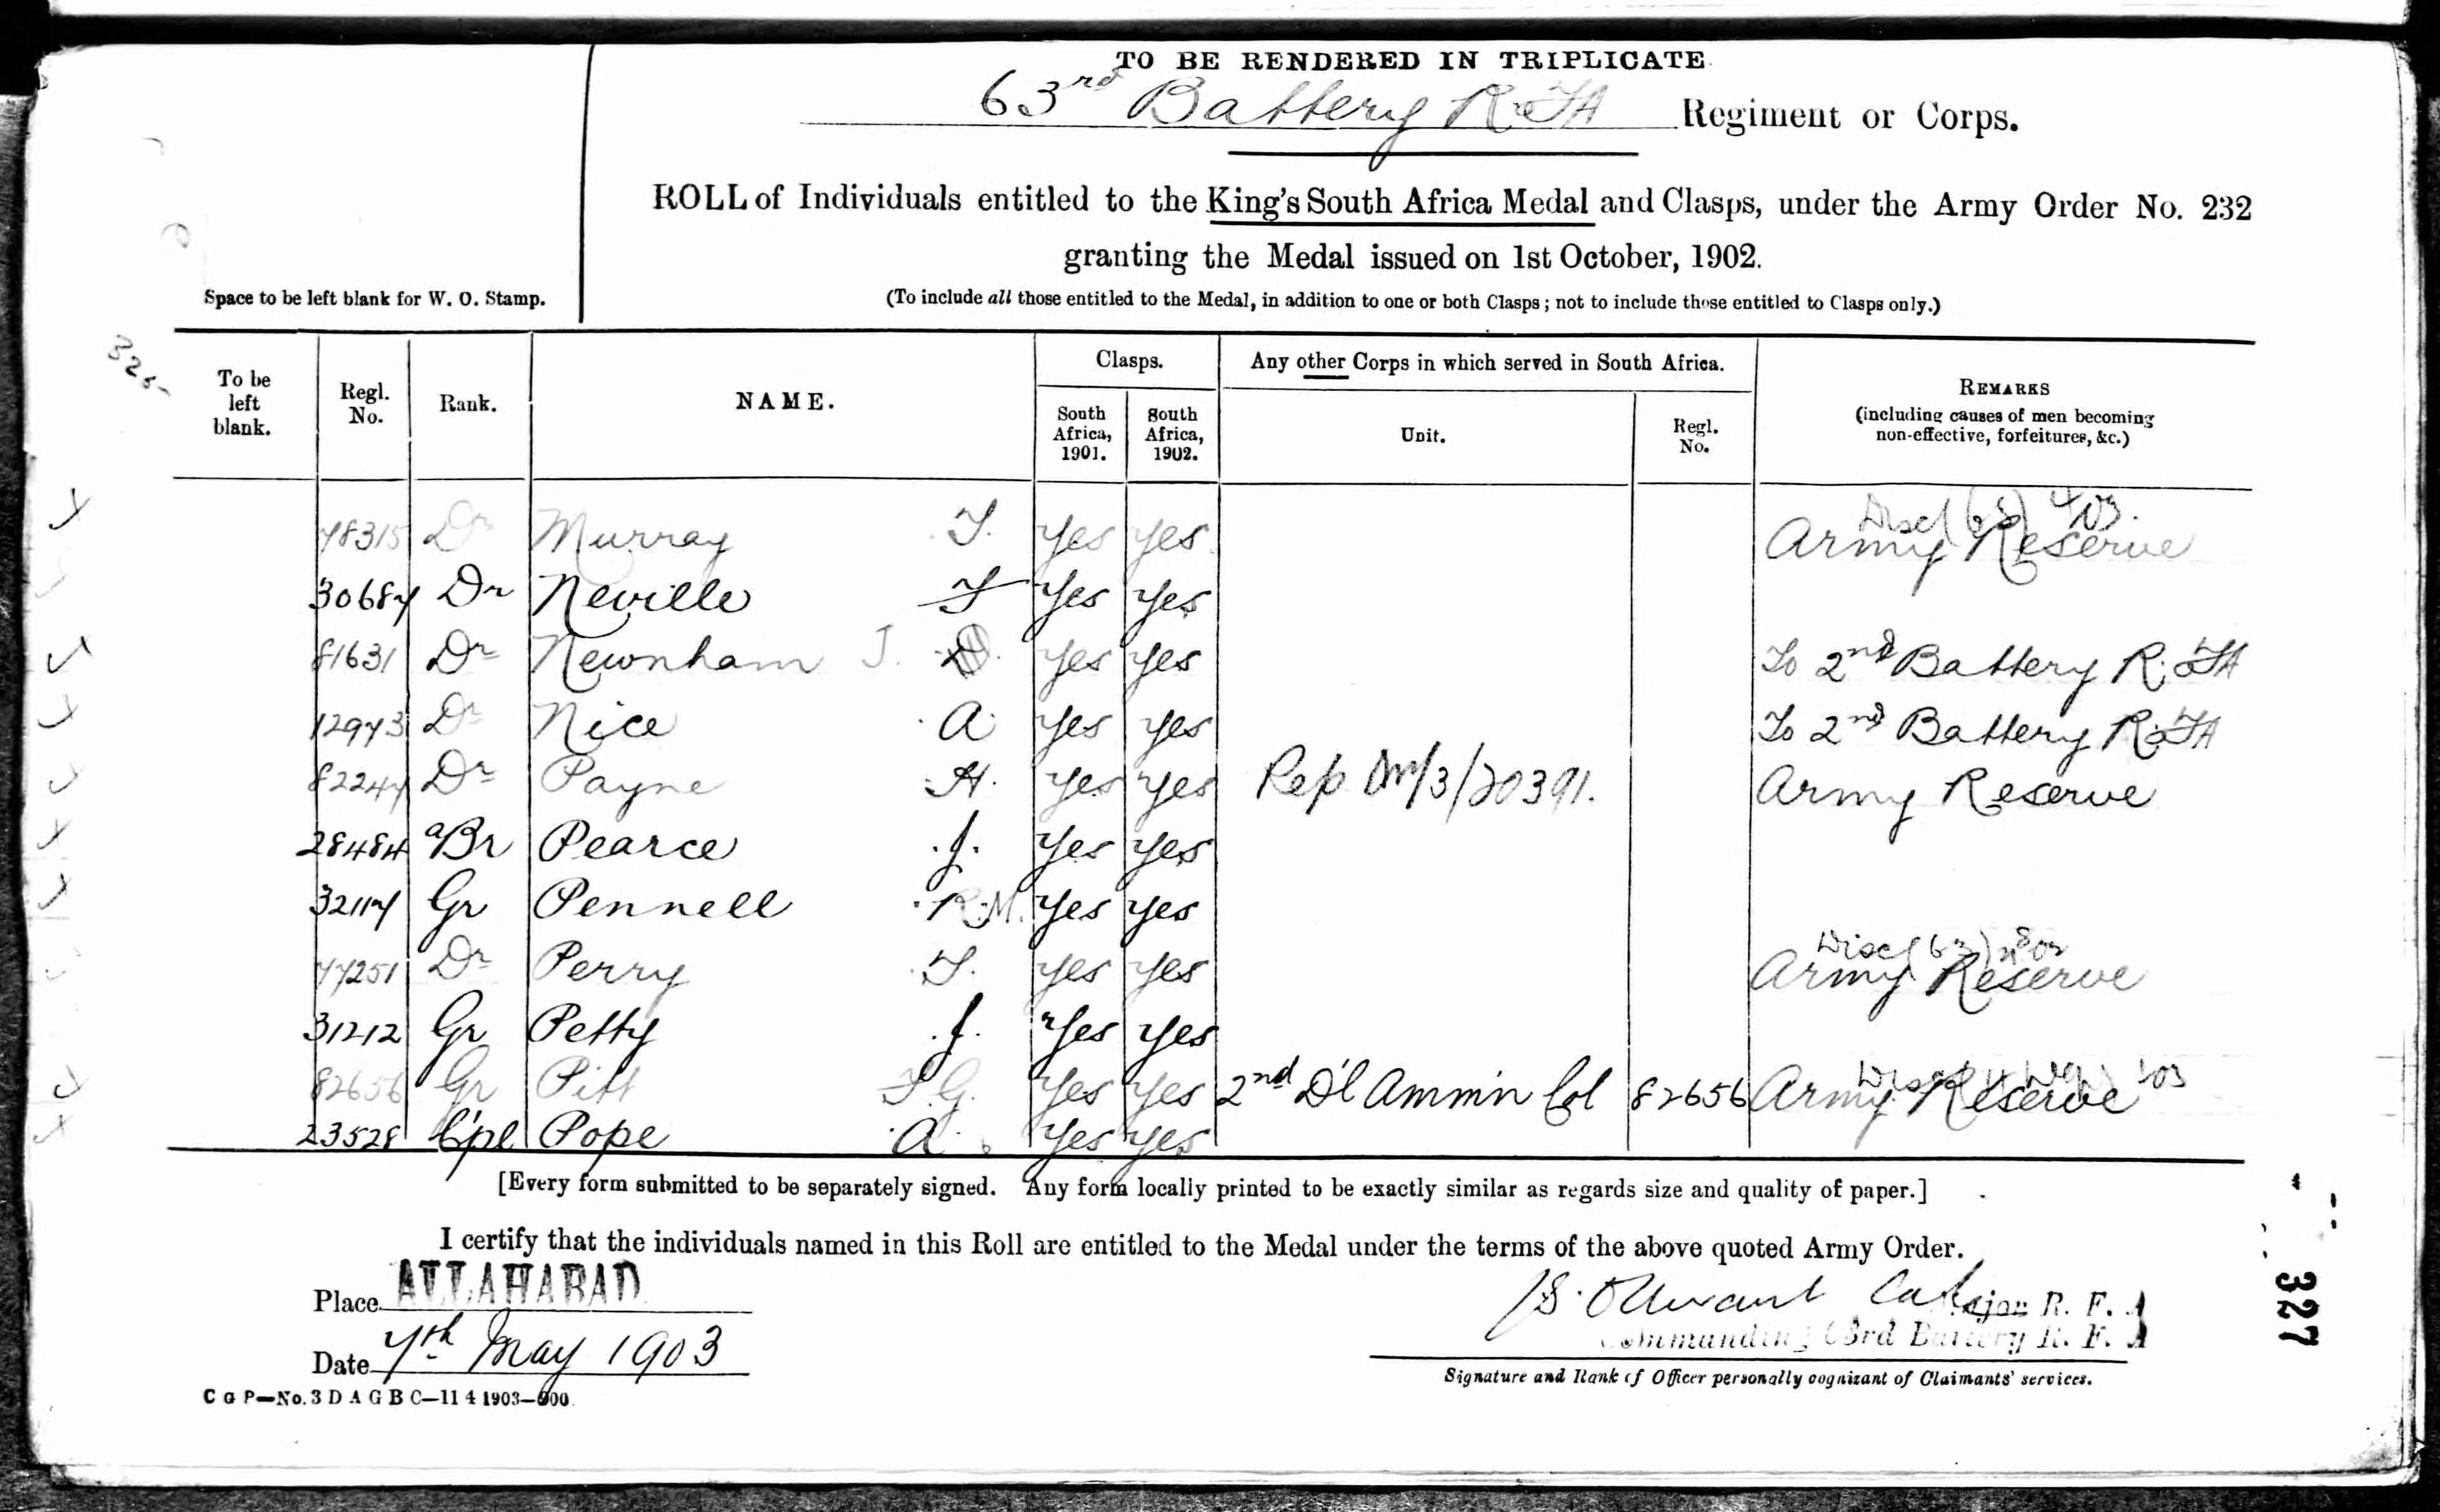 TO BE RENDERED IN TRIPLICATE
63rd Battery R.F.A Regiment or Corps.
ROLL of Individuals entitled to the King's South Africa Medal and Clasps, under the Army Order No. 232
granting the Medal issued on 1st October, 1902.
Space to be left blank for W. O. Stamp.
(To include all those entitled to the Medal, in addition to one or both Clasps; not to include those entitled to Clasps only.)
To be left blank. Regl. No. Rank. NAME. Clasps. South Africa, 1901. South Africa, 1902. Any other Corps in which served in South Africa. Unit. Regl. No. REMARKS (including causes of men becoming non-effective, forfeitures, &c.)
78315 Dr Murray T. Yes Yes Army Reserve
30687 Dr Neville Yes Yes
81631 Dr Newnham J. Yes Yes To 2nd Battery R.F.A
12973 Dr Nice A. Yes Yes To 2nd Battery R.F.A
82247 Dr Payne H. Yes Yes Rep 3/20391. Army Reserve
28484 aBr Pearce J. Yes Yes
32117 Gr Pennell R.M. Yes Yes
77251 Dr Perry T. Yes Yes Disc (63) Army Reserve
31212 Gr Petty J. Yes Yes
82656 Gr Pitt G. Yes Yes 2nd D'l Ammn Col 82656 Army Reserve
23528 Cpl Pope A. Yes Yes
[Every form submitted to be separately signed. Any form locally printed to be exactly similar as regards size and quality of paper.]
I certify that the individuals named in this Roll are entitled to the Medal under the terms of the above quoted Army Order.
Place ALLAHABAD
Date 7th May 1903
Major R. F. A
Commanding 63rd Battery R. F. A
Signature and Rank of Officer personally cognizant of Claimants' services.
C G P—No. 3 D A G B C—11 4 1903—
327